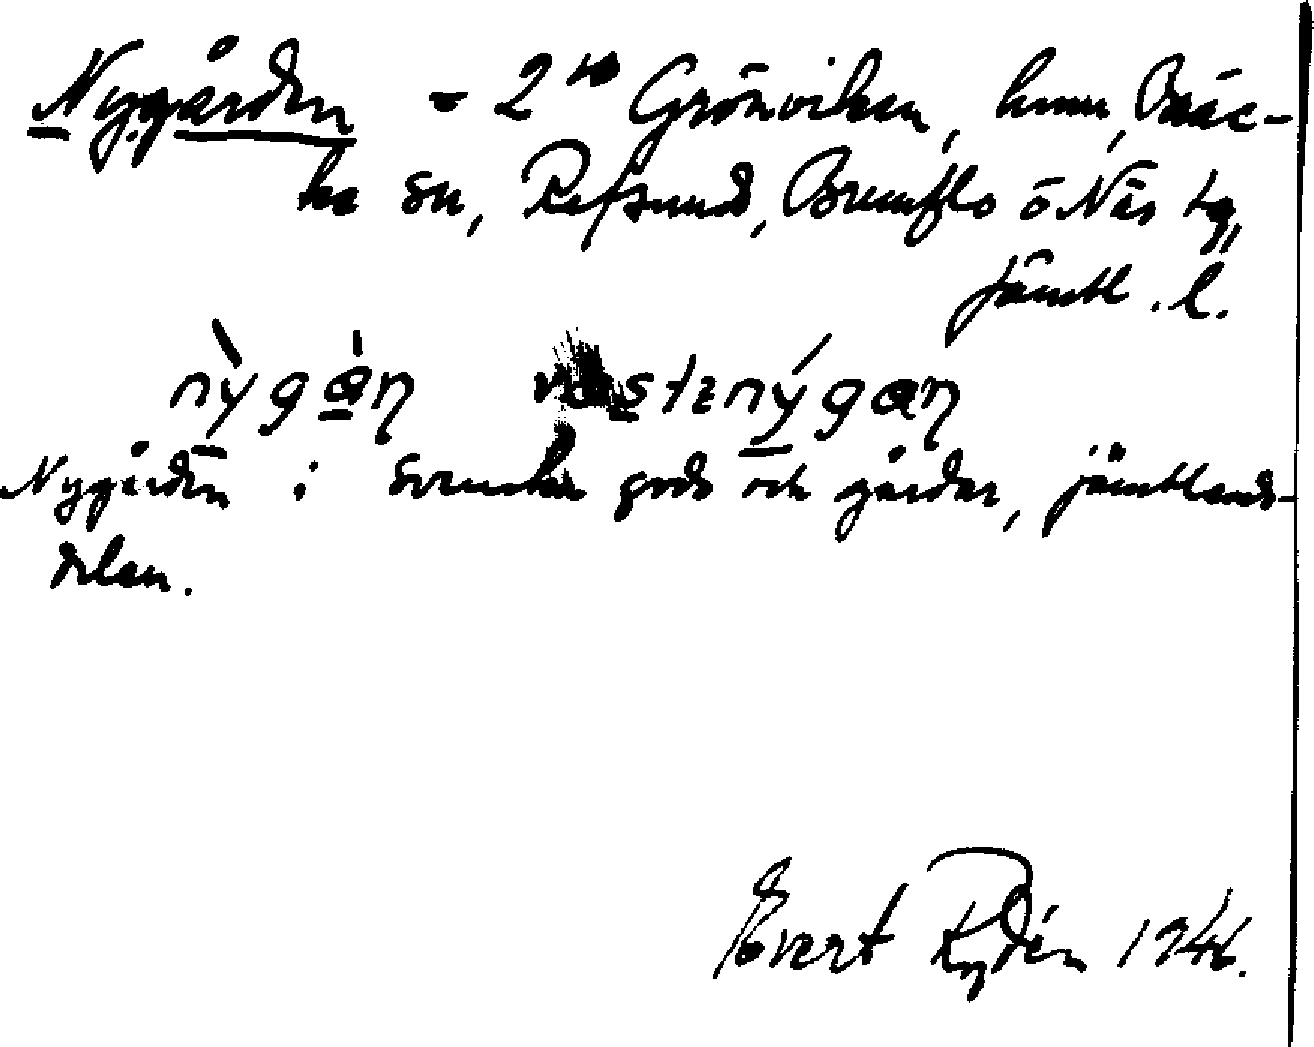 Nygården = 2 Grönviken, hmn, Bräc-
ke sn, Refsund, Brunflo o Näs tg,
Jämtl. l.
nỳgàn västenýgan
Nygården i Svenska gods och gårdar, jämtlands-
delen.
Evert Rydén 1946.